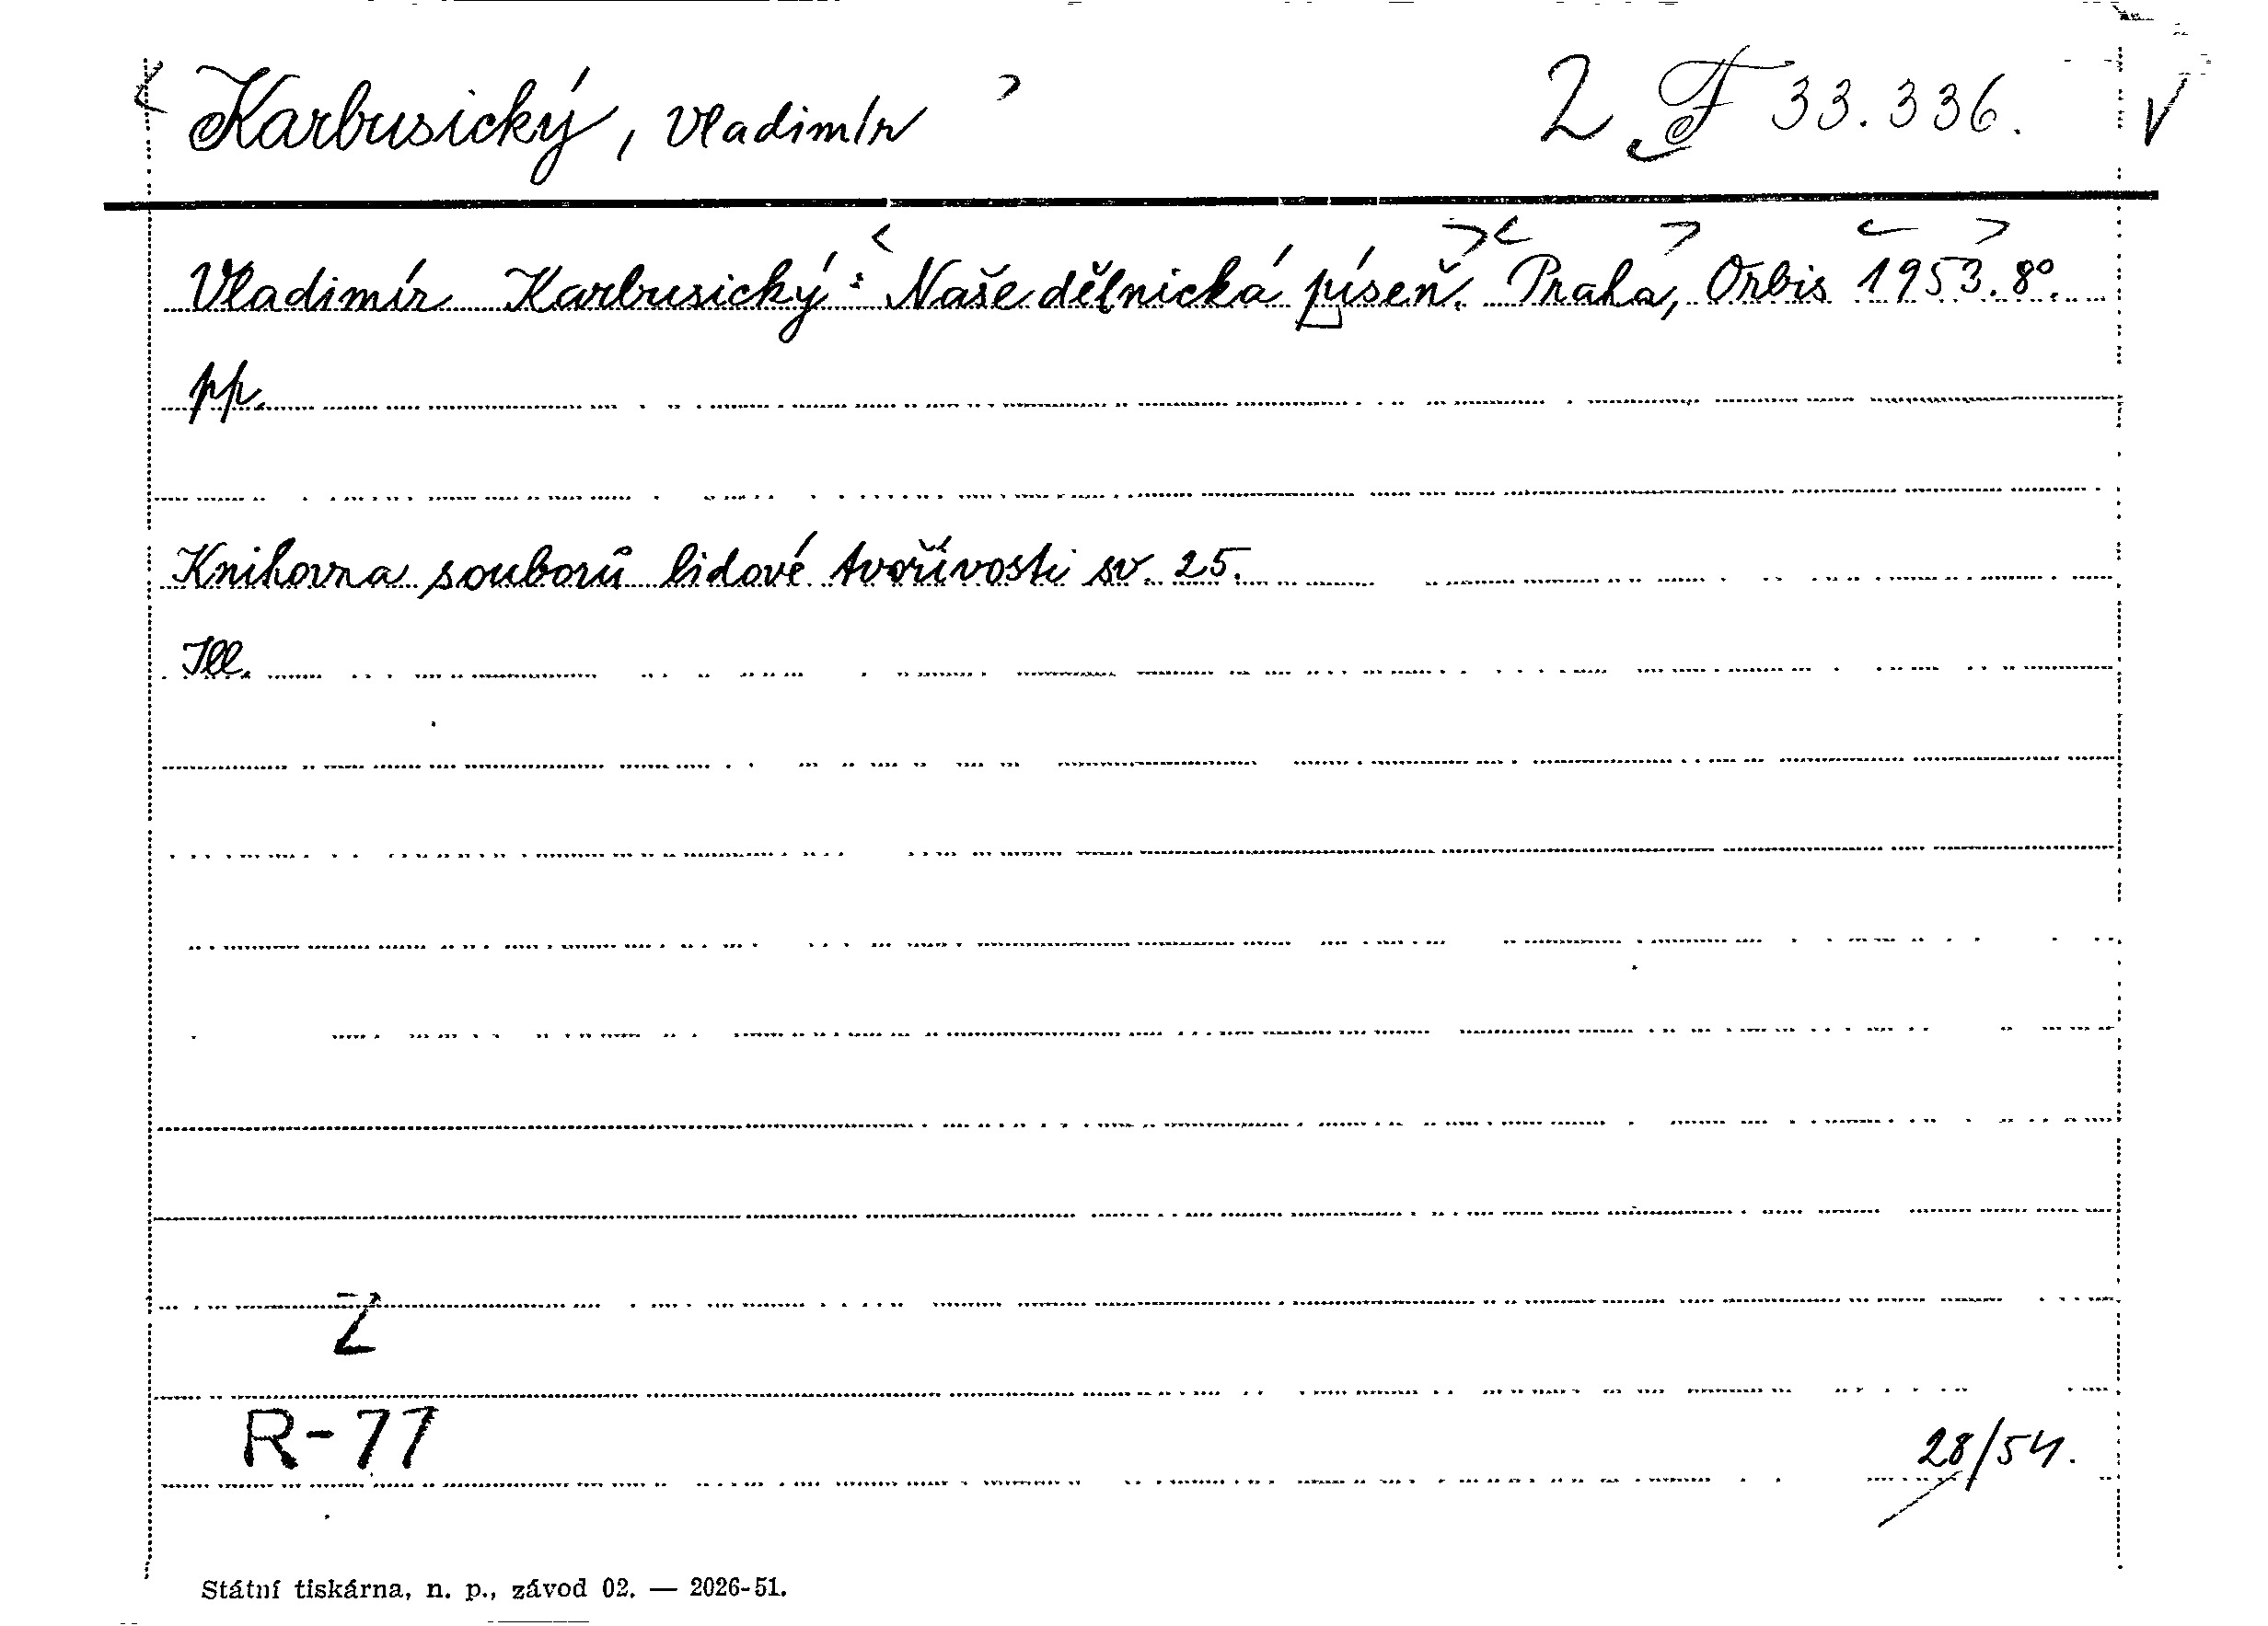 < Karbusický, Vladimír > 2 F 33.336. V
Vladimír Karbusický: <Naše dělnická píseň.> <Praha,> Orbis <1953.> 8°.
pp.
Knihovna souborů lidové tvořivosti sv. 25.
Ill.
Z
R-77
28/54.
Státní tiskárna, n. p., závod 02. — 2026-51.